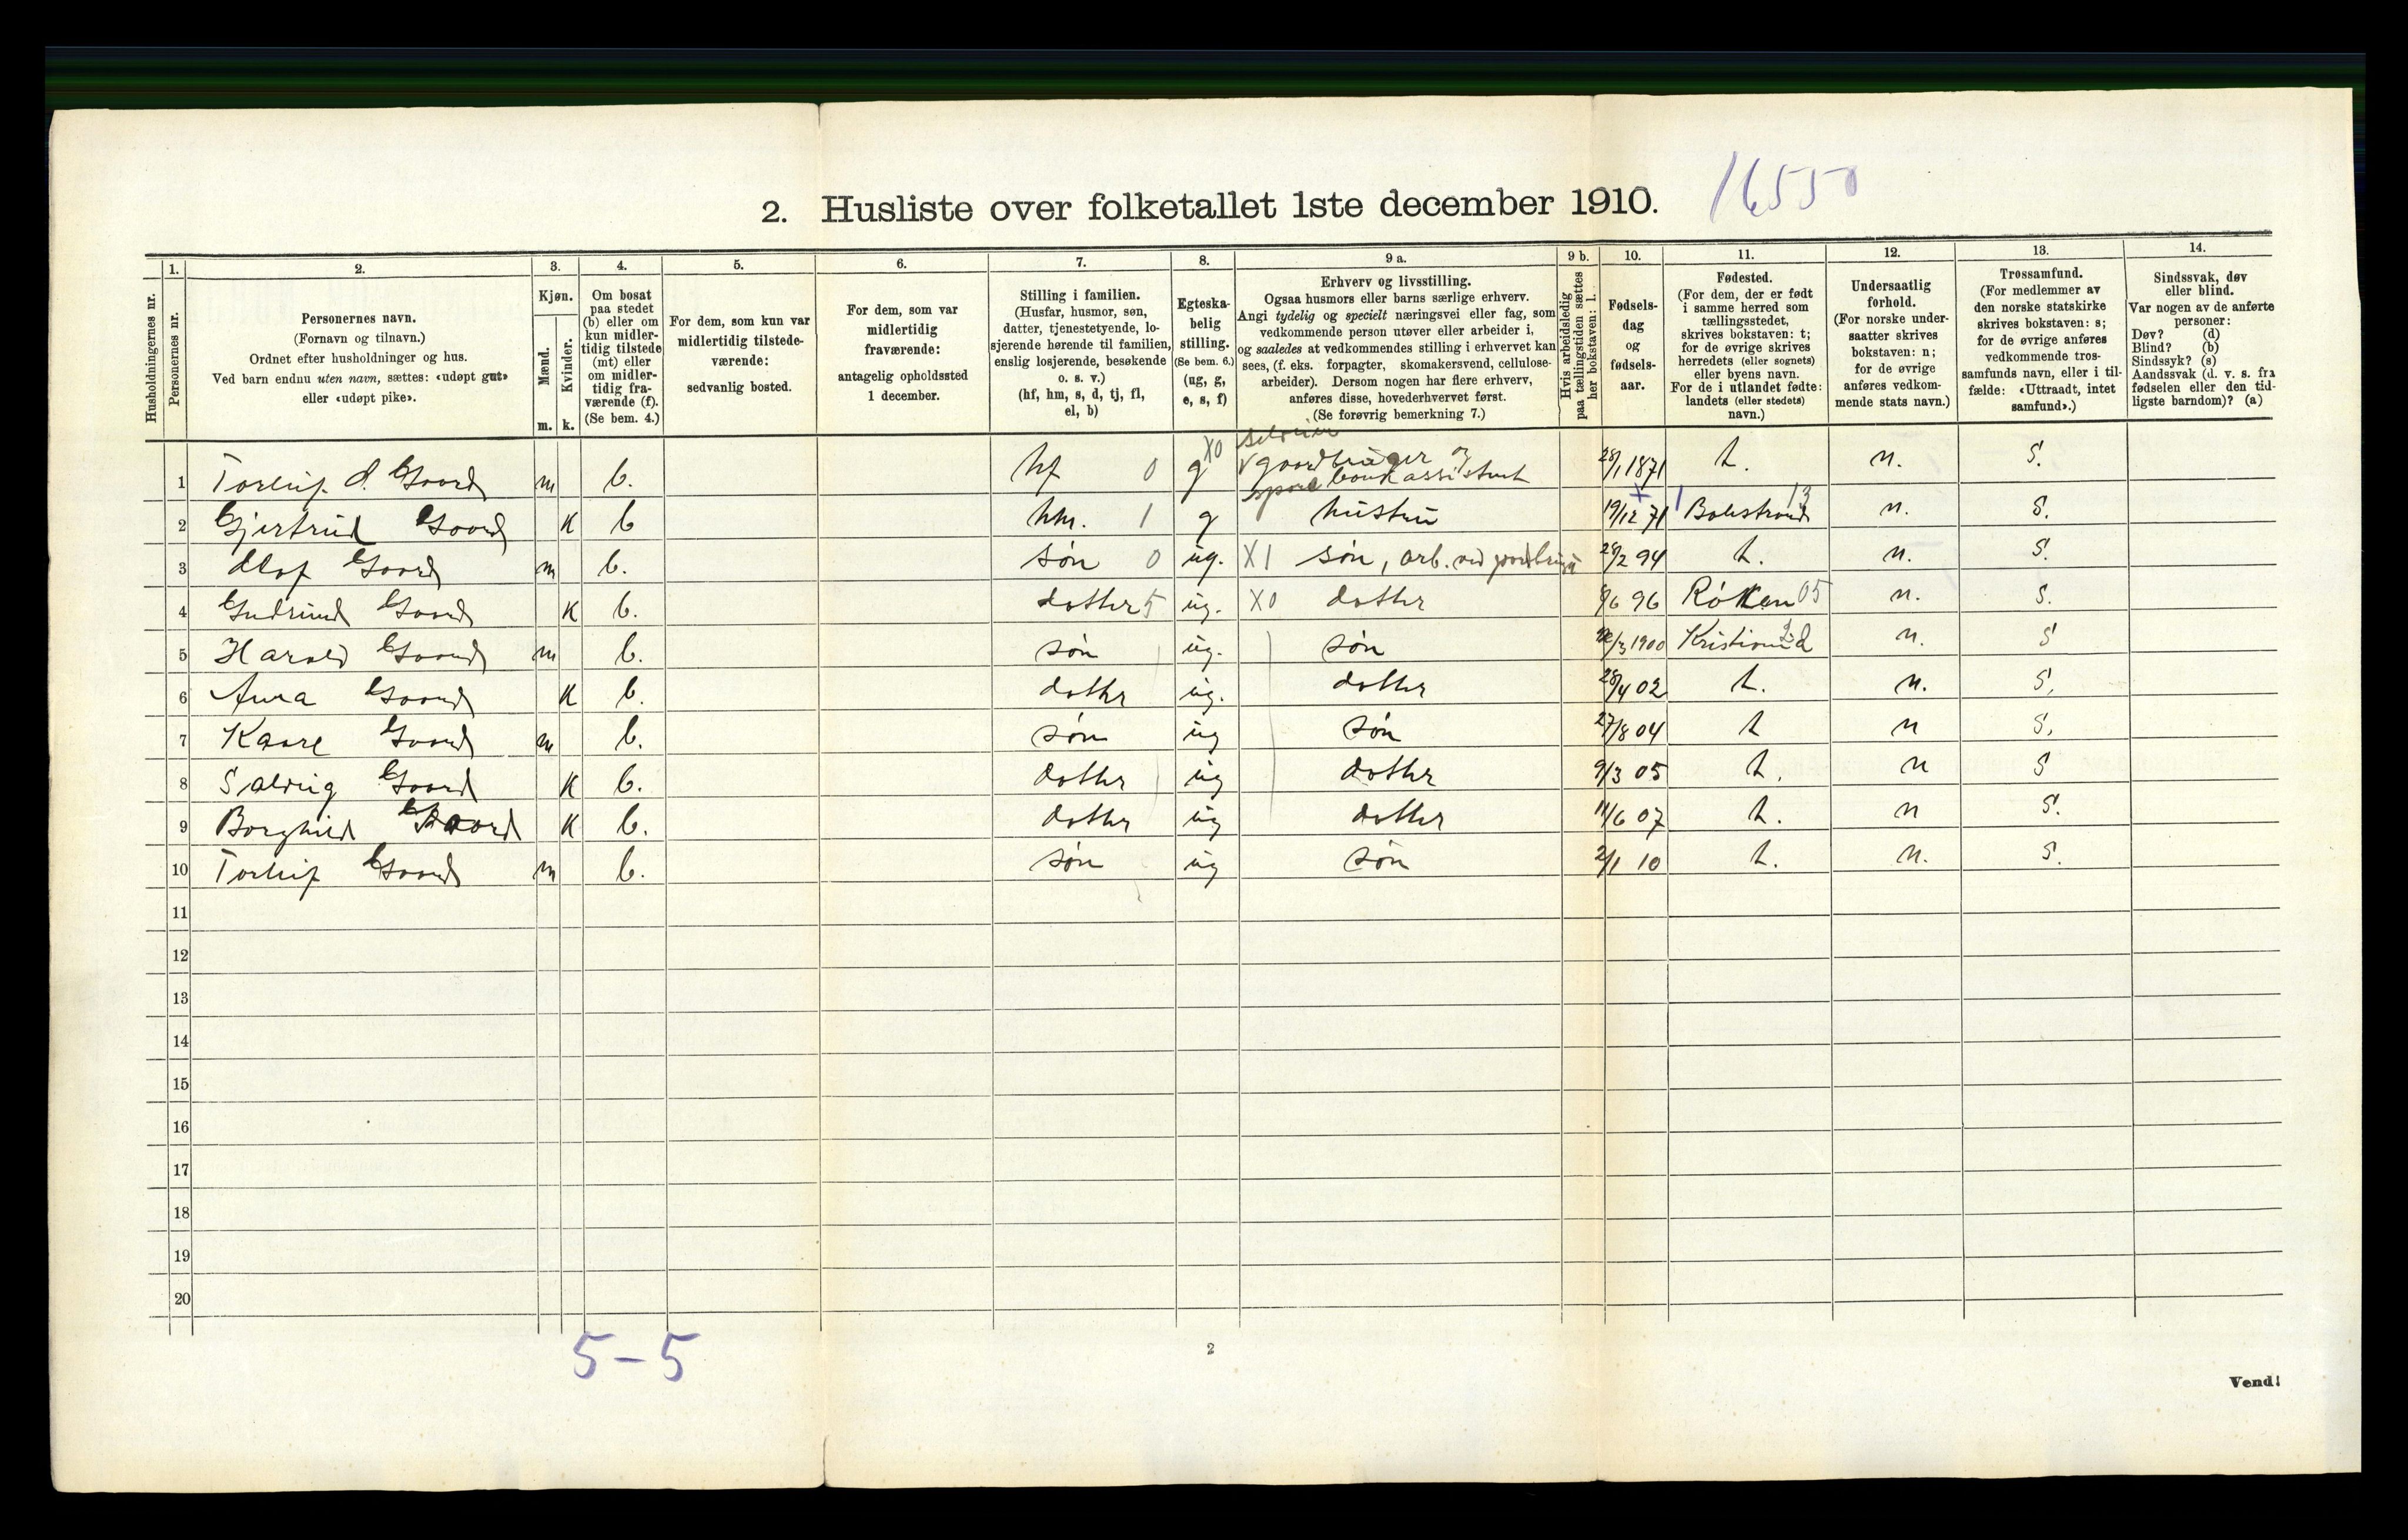 2. Husliste over folketallet 1ste december 1910. 16550
Husholdningernes nr.
1.
Personernes nr.
2.
Personernes navn.
(Fornavn og tilnavn.)
Ordnet efter husholdninger og hus.
Ved barn endnu uten navn, sættes: «udøpt gut»
eller «udøpt pike».
3.
Kjøn.
Mænd.
Kvinder.
m. k.
4.
Om bosat
paa stedet
(b) eller om
kun midler-
tidig tilstede
(mt) eller
om midler-
tidig fra-
værende (f).
(Se bem. 4.)
5.
For dem, som kun var
midlertidig tilstede-
værende:
sedvanlig bosted.
6.
For dem, som var
midlertidig
fraværende:
antagelig opholdssted
1 december.
7.
Stilling i familien.
(Husfar, husmor, søn,
datter, tjenestetyende, lo-
sjerende hørende til familien,
enslig losjerende, besøkende
o. s. v.)
(hf, hm, s, d, tj, fl,
el, b)
8.
Egteska-
belig
stilling.
(Se bem. 6.)
(ug, g,
e, s, f)
9 a.
Erhverv og livsstilling.
Ogsaa husmors eller barns særlige erhverv.
Angi tydelig og specielt næringsvei eller fag, som
vedkommende person utøver eller arbeider i,
og saaledes at vedkommendes stilling i erhvervet kan
sees, (f. eks. forpagter, skomakersvend, cellulose-
arbeider). Dersom nogen har flere erhverv,
anføres disse, hovederhvervet først.
(Se forøvrig bemerkning 7.)
9 b.
Hvis arbeidsledig
paa tællingstiden sættes
her bokstaven: l.
10.
Fødsels-
dag
og
fødsels-
aar.
11.
Fødested.
(For dem, der er født
i samme herred som
tællingsstedet,
skrives bokstaven: t;
for de øvrige skrives
herredets (eller sognets)
eller byens navn.
For de i utlandet fødte:
landets (eller stedets)
navn.)
12.
Undersaatlig
forhold.
(For norske under-
saatter skrives
bokstaven: n;
for de øvrige
anføres vedkom-
mende stats navn.)
13.
Trossamfund.
(For medlemmer av
den norske statskirke
skrives bokstaven: s;
for de øvrige anføres
vedkommende tros-
samfunds navn, eller i til-
fælde: «Uttraadt, intet
samfund».)
14.
Sindssvak, døv
eller blind.
Var nogen av de anførte
personer:
Døv? (d)
Blind? (b)
Sindssyk? (s)
Aandssvak (d. v. s. fra
fødselen eller den tid-
ligste barndom)? (a)
X0 selveier
1 Torleif d. Gaard m b. hf 0 g V gaardbruger og 28/1 1871 t. n. s.
sparebankassistent
2 Gjertrud Gaard k b hm. 1 g hustru 19/12 71 Balestrand 13 n. s.
3 Olaf Gaard m b. søn 0 ug. X1 søn, arb. ved gardbruget 28/2 94 t. n. s.
4 Gudrund Gaard k b. datter 5 ug. X0 datter 9/6 96 Røken 05 n. s.
5 Harald Gaard m b. søn ug. søn /3 1900 n. s
6 Anna Gaard k b. datter ug. datter 28/4 02 t. n. s.
7 Kaare Gaard m b. søn ug søn 27/8 04 t n s.
8 Solveig Gaard k b. datter ug datter 9/3 05 t. n s
9 Borghild Gaard k b. datter ug datter 11/6 07 t. n s.
10 Torleif Gaard m b. søn ug søn 2/1 10 t. n. s.
11
12
13
14
15
16
17
18
19
20
5-5
2
Vend!